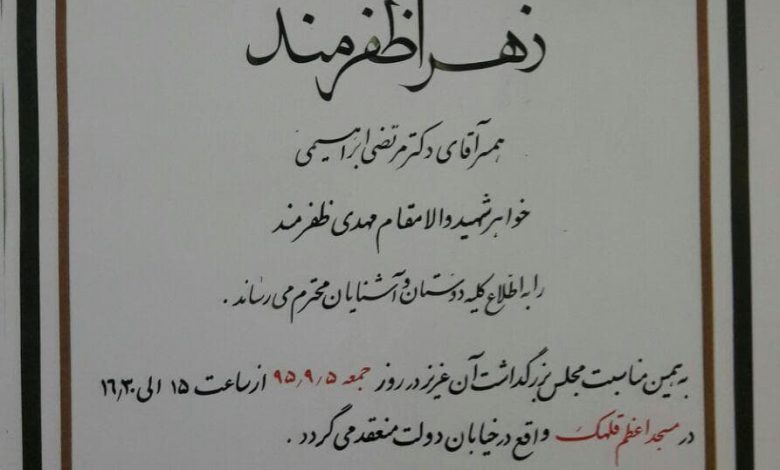 زهرا ظفرمند
همسر آقای دکتر مرتضی ابراهیمی
خواهر شهید والا مقام مهدی ظفرمند
را به اطلاع کلیه دوستان و آشنایان محترم می رساند .
به همین مناسبت مجلس بزرگداشت آن عزیز در روز جمعه ۹۵٫۹٫۵ از ساعت ۱۵ الی ۱۶٫۳۰
در مسجد اعظم قلهک واقع در خیابان دولت منعقد می گردد .